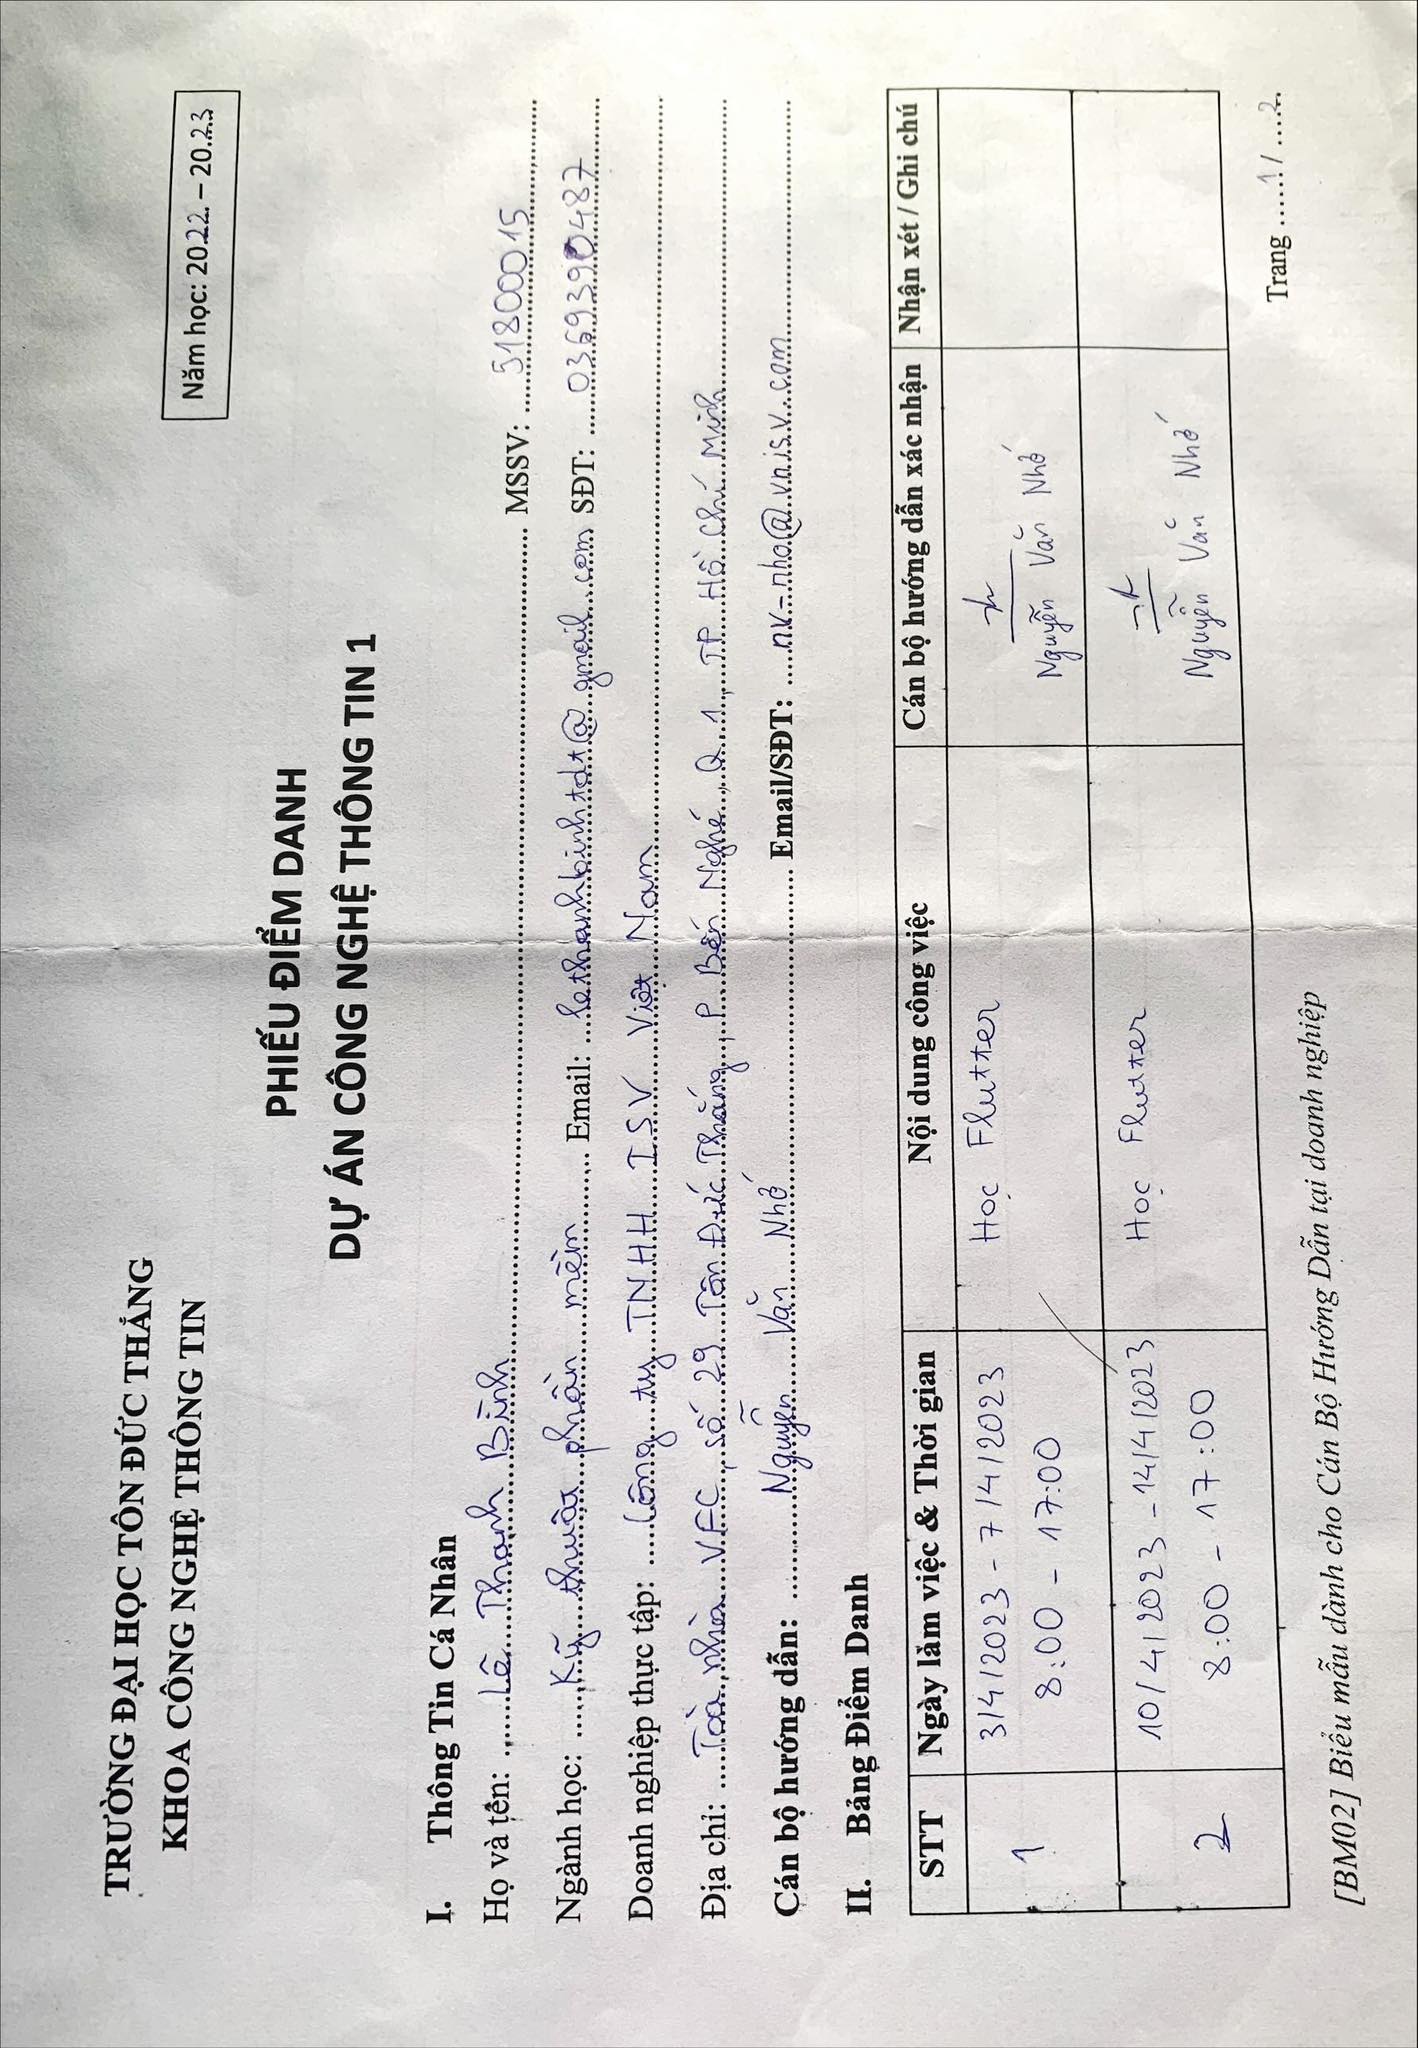 TRƯỜNG ĐẠI HỌC TÔN ĐỨC THẮNG
KHOA CÔNG NGHỆ THÔNG TIN
Năm học: 2022 – 2023
PHIẾU ĐIỂM DANH
DỰ ÁN CÔNG NGHỆ THÔNG TIN 1
I. Thông Tin Cá Nhân
Họ và tên: Lê Thanh Bình MSSV: 51800015
Ngành học: Kỹ thuật phần mềm Email: lethanhbinhtdt@gmail.com SĐT: 0369390487
Doanh nghiệp thực tập: Công ty TNHH ISV Việt Nam
Địa chỉ: Toà nhà VFC, số 29 Tôn Đức Thắng, P Bến Nghé, Q.1, TP Hồ Chí Minh
Cán bộ hướng dẫn: Nguyễn Văn Nhớ Email/SĐT: nv-nho@vn.is.v.com
II. Bảng Điểm Danh
STT Ngày làm việc & Thời gian Nội dung công việc Cán bộ hướng dẫn xác nhận Nhận xét / Ghi chú
1 3/4/2023 - 7/4/2023 Học Flutter
8:00 - 17:00 Nguyễn Văn Nhớ
2 10/4/2023 - 14/4/2023 Học Flutter
8:00 - 17:00 Nguyễn Văn Nhớ
Trang 1 / 2
[BM02] Biểu mẫu dành cho Cán Bộ Hướng Dẫn tại doanh nghiệp